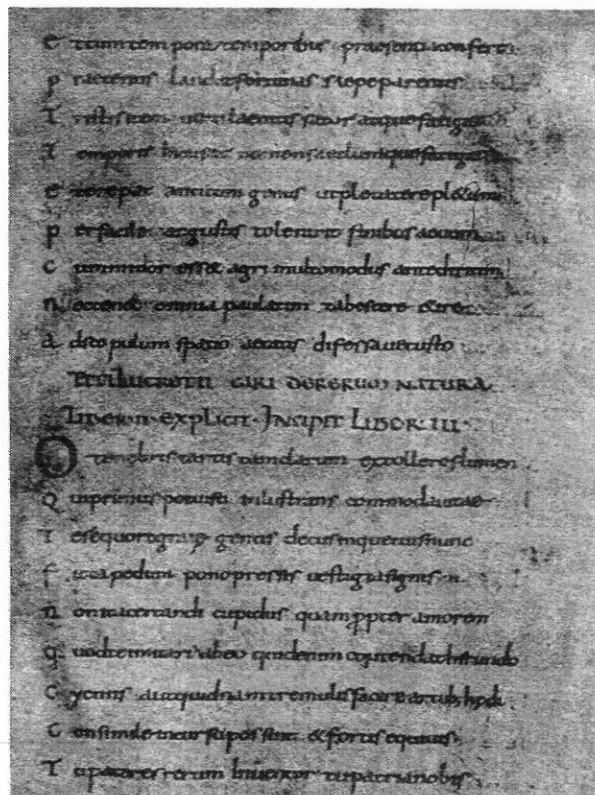 et cum tempora temporibus praesentia confert
praeteritis laudat fortunas saepe parentis
Tristis item uetulae uitis sator atque fatigat
Temporis incusat
et crepat anticum genus ut pietate repletum
perfacile angustis tolerarit finibus aeuom
cum minor esset agri multo modus ante
nec tenet omnia paulatim tabescere et ire
ad spatio aetatis defessa uetusto
TITI LUCRETII CARI DE RERUM NATURA
LIBER II EXPLICIT · INCIPIT LIBER III
O tenebris tantis tam clarum extollere lumen
Qui primus potuisti inlustrans commoda uitae
Te sequor o graiae gentis decus inque tuis nunc
ficta pedum pono pressis uestigia signis
non ita certandi cupidus quam ppter amorem
quod te imitari abeo quid enim contendat hirundo
Cycnis aut quidnam tremulis facere artubus hedi
Consimile in cursu possint et fortis equi uis
Tu pater es rerum inuentor tu patria nobis